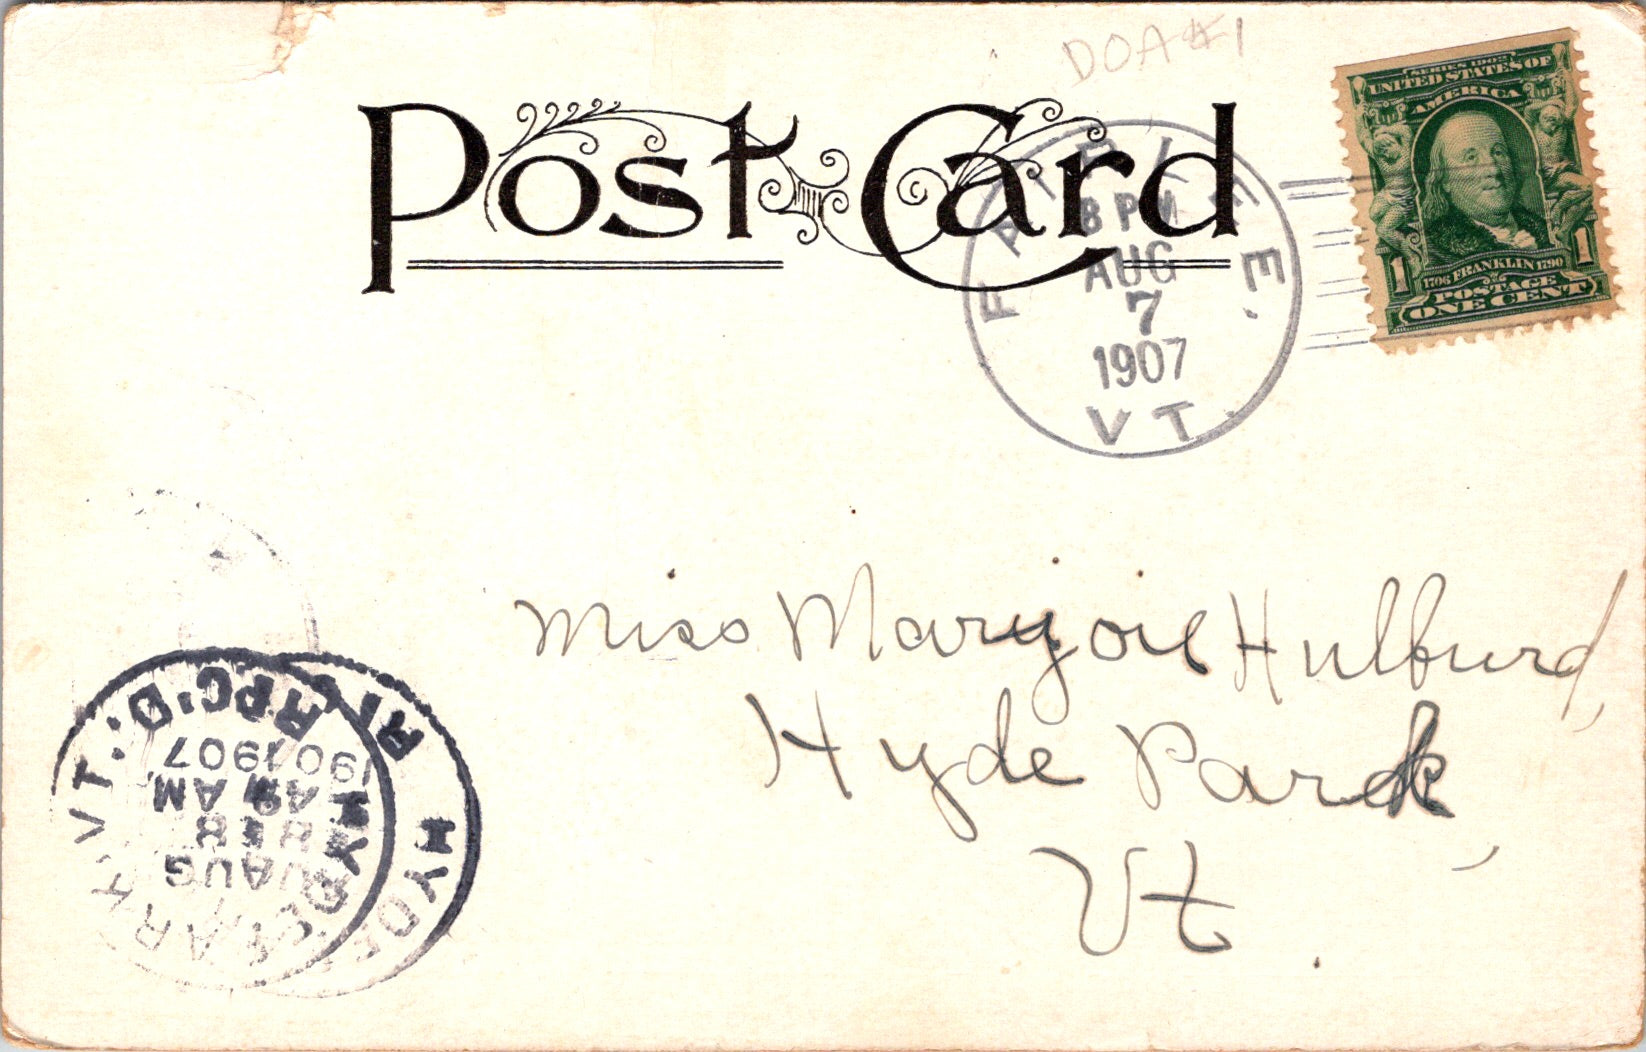 DOA #1
Post Card
SERIES 1902
UNITED STATES OF
AMERICA
1706 FRANKLIN 1790
1 1
POSTAGE
ONE CENT
FAIRLEE,
8 PM
AUG
7
1907
VT.
Miss Marjorie Hulburd,
Hyde Park,
Vt.
HYDE PARK, VT.
AUG
8
AM
1907
REC'D.